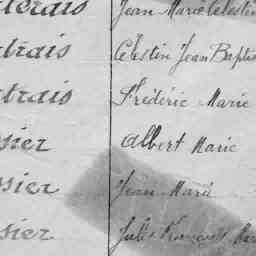 Jean Marie Célestin
trais Célestin Jean Baptis
trais Frédéric Marie
sier Albert Marie
ssier Jean Marie
sier Jules François Mar